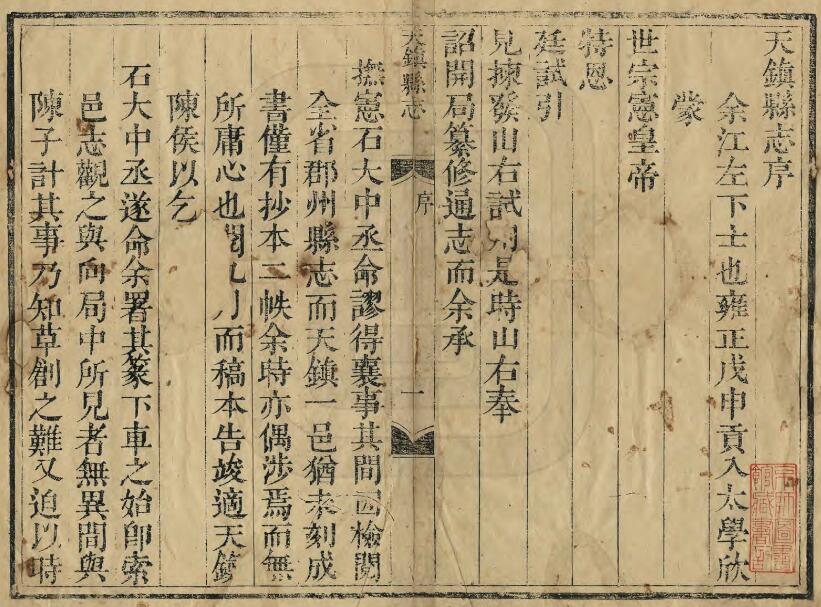 天鎮縣志序
余江左下士也雍正戊申貢入太學欣
蒙
世宗憲皇帝
特恩
廷試引
見揀發山右試用是時山右奉
詔開局纂修通志而余承
天鎮縣志
序
一
撫憲石大中丞命謬得襄事其間因檢閱
全省郡州縣志而天鎮一邑猶未刻成
書僅有抄本二帙余時亦偶涉焉而無
所庸心也閱九月而稿本告竣適天鎮
陳侯以乞
石大中丞遂命余署其篆下車之始即索
邑志觀之與向局中所見者無異間與
陳子計其事乃知草創之難又迫以時